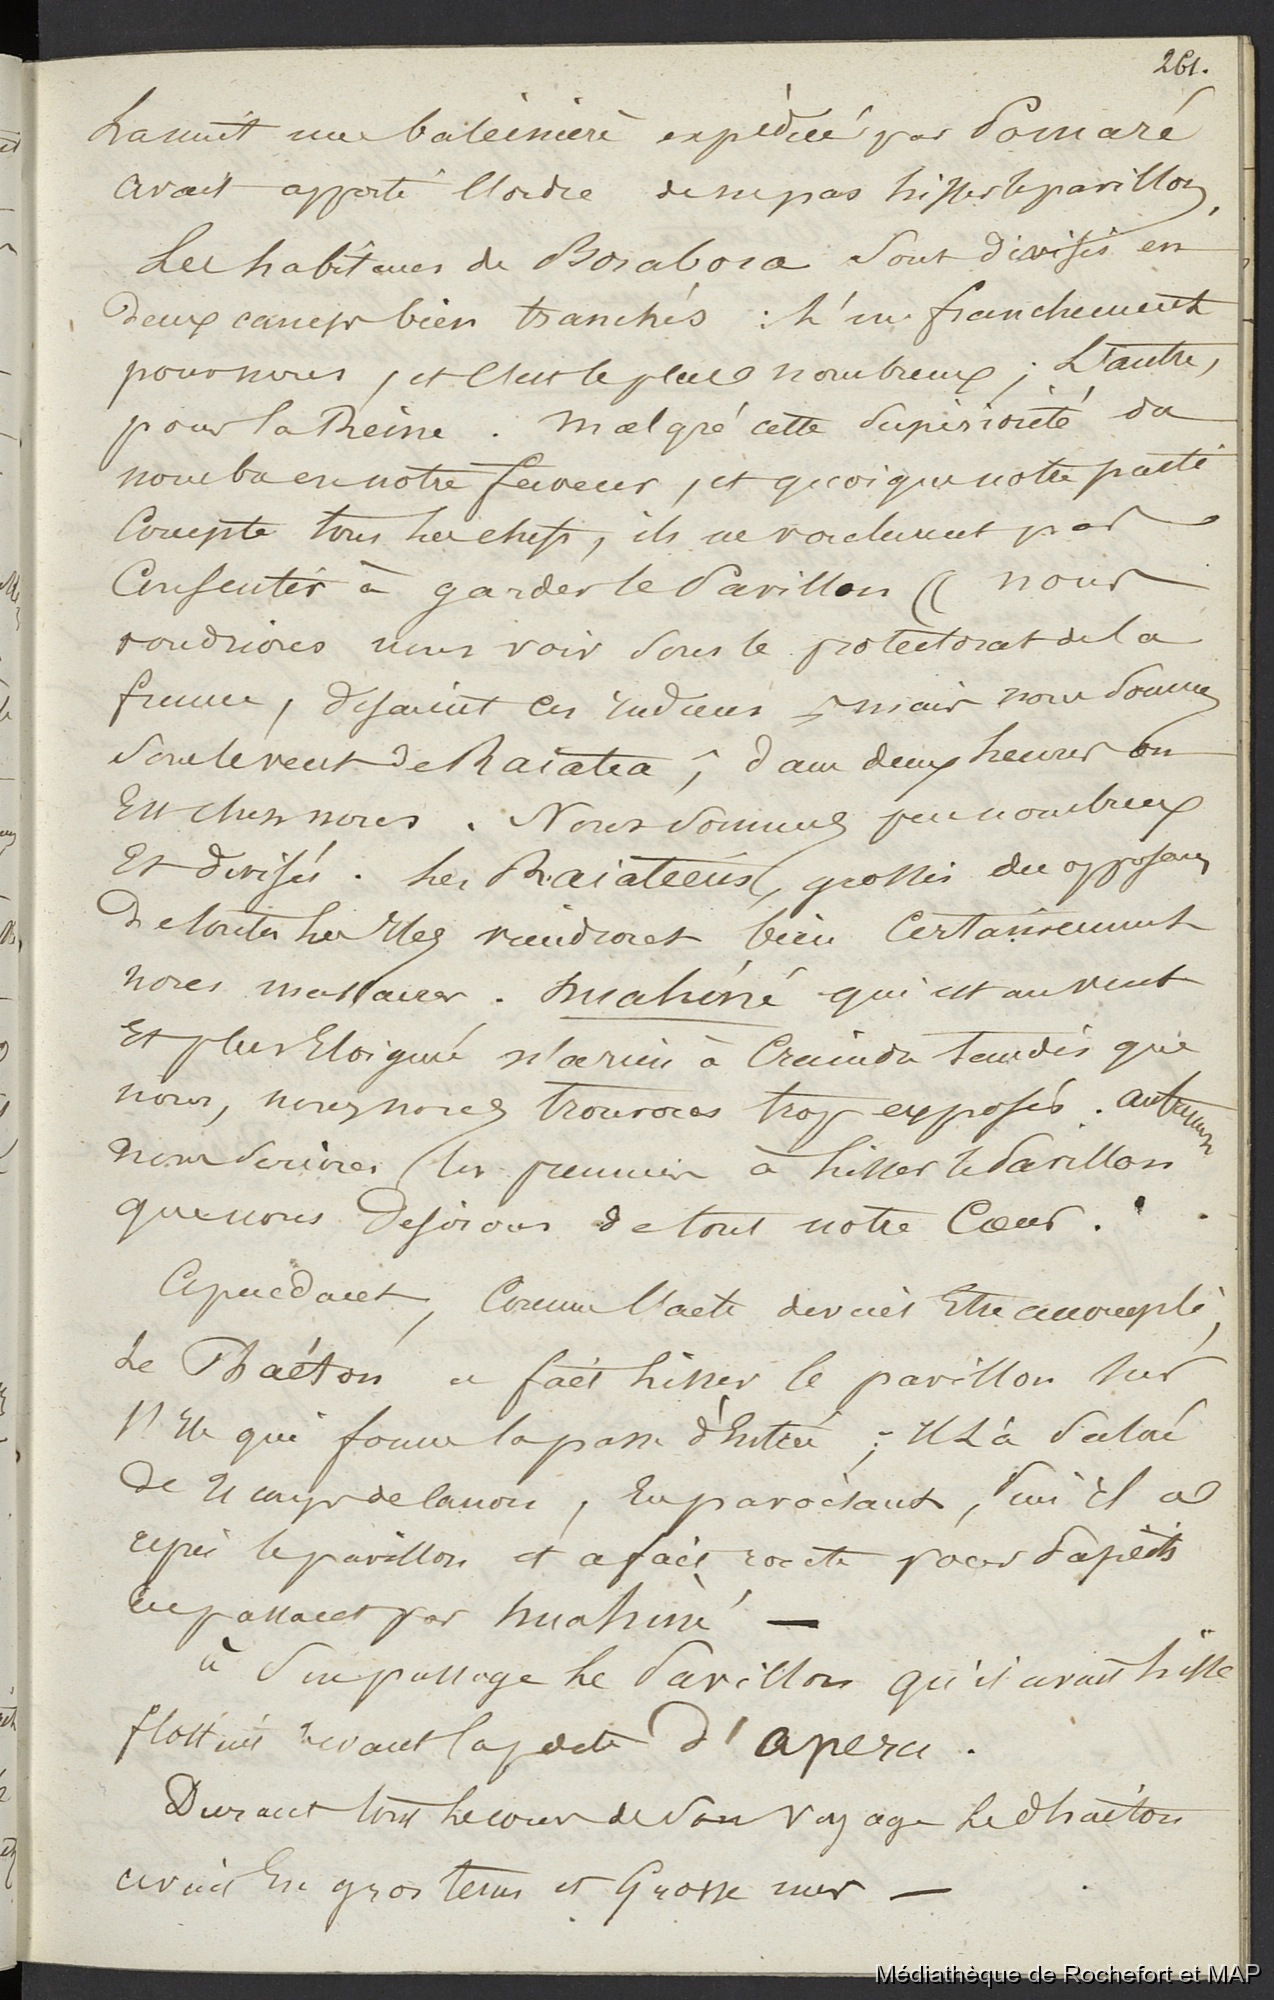 261.
La nuit une baleinière expédiée par Pomaré
avait apporté l'ordre de ne pas hisser le pavillon.
Les habitans de Borabora sont divisés en
deux camps bien tranchés : L'un franchement
pour nous, et c'est le plus nombreux ; L'autre,
pour la Reine . Malgré cette supériorité du
nombre en notre faveur, et quoique notre parti
Compte tous les chefs, ils ne voulurent pas
Consentir à garder le Pavillon (( nous
voudrions nous voir sous le protectorat de la
france, disaient ces indiens ; mais nous sommes
sous le vent de Raiatea ; dans deux heures on
Est chez nous . Nous sommes peu nombreux
Et divisés . les Raiatéens, grossis des opposans
De toutes les Iles viendront bien Certainement
nous massacrer . Huahiné qui est au vent
Et plus Eloigné n'a rien à Craindre tandis que
nous, nous nous trouvons trop exposés . autrement
nous serions les premiers à hisser le Pavillon
que nous desirons de tout notre Coeur .
Cependant, Comme l'acte devait Etre accompli,
Le Phaéton a fait hisser le pavillon sur
l'Ile qui forme la passe d'Entrée ; Il l'a Salué
De 21 coups de canon, En paroissant, puis il a
repris le pavillon et a fait route pour Papeïti
En passant par Huahiné —
à son passage le Pavillon qu'il avait hissé
flottait devant la porte d'apera .
Durant tout le cours de son voyage Le Phaéton
avait Eu gros tems et Grosse mer —
Médiathèque de Rochefort et MAP